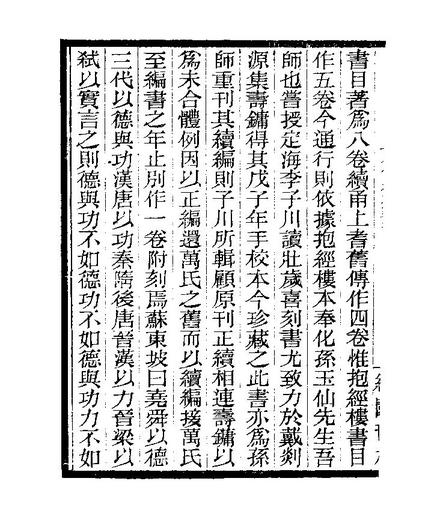 書目著爲八卷續甬上耆舊傳作四卷惟抱經樓書目
作五卷今通行則依據抱經樓本奉化孫玉仙先生吾
師也嘗授定海李子川讀壯歲喜刻書尤致力於戴剡
源集壽鏞得其戊子年手校本今珍藏之此書亦爲孫
師重刊其續編則子川所輯顧原刊正續相連壽鏞以
爲未合體例因以正編還萬氏之舊而以續編接萬氏
至編書之年止別作一卷附刻焉蘇東坡曰堯舜以德
三代以德與功漢唐以功秦隋後唐晉漢以力晉梁以
弑以實言之則德與功不如德功不如德與功力不如